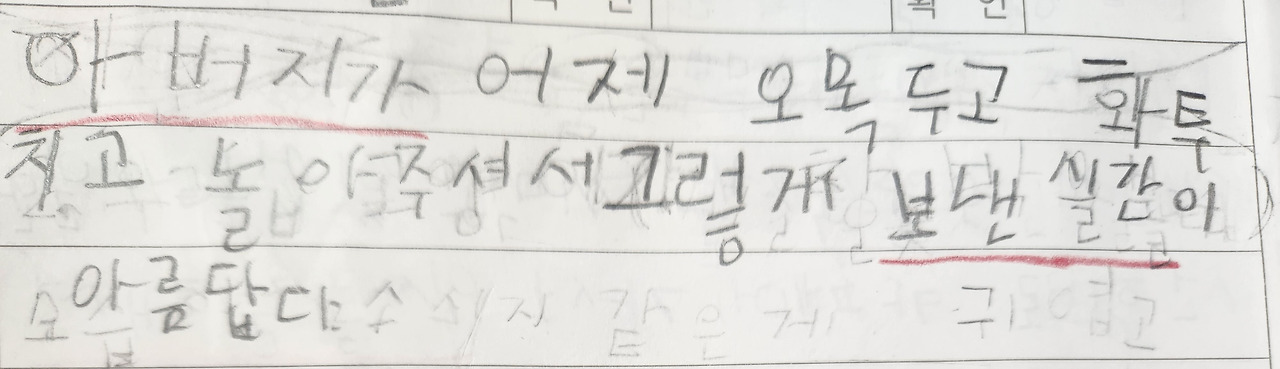 아버지가 어제 오목 두고 화투
치고 놀아주셔서 그렇게 보낸 실간이
아름답다